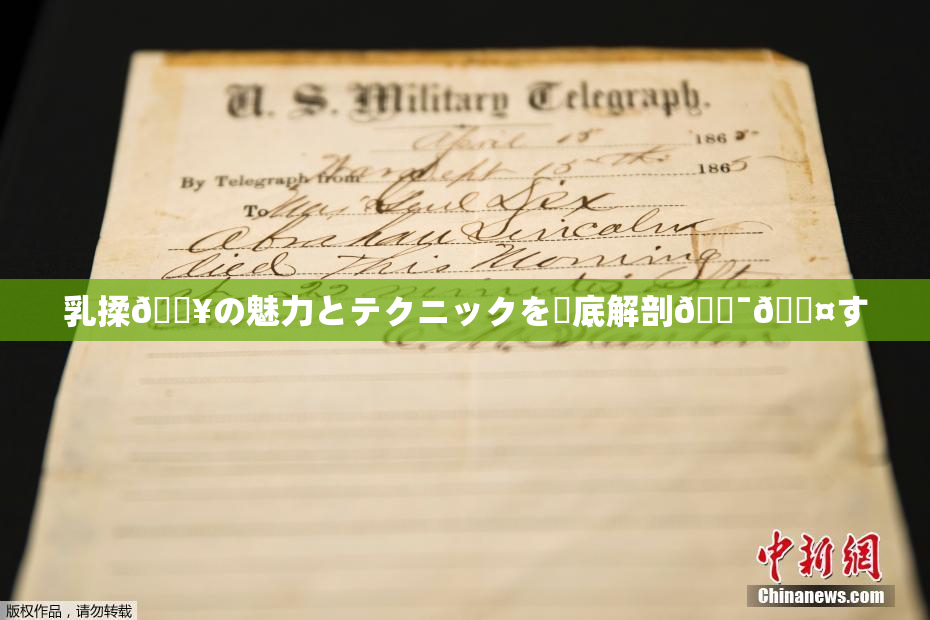 U. S. Military Telegraph.
April 15 1865
By Telegraph from War Dept 15th 1865
To Maj Genl Dix
Abraham Lincoln
died This Morning
乳揉ð¥の魅力とテクニックを底解剖ð¯ð¤す
22 minutes after
E. M. Stanton
中新网
Chinanews.com
版权作品，请勿转载